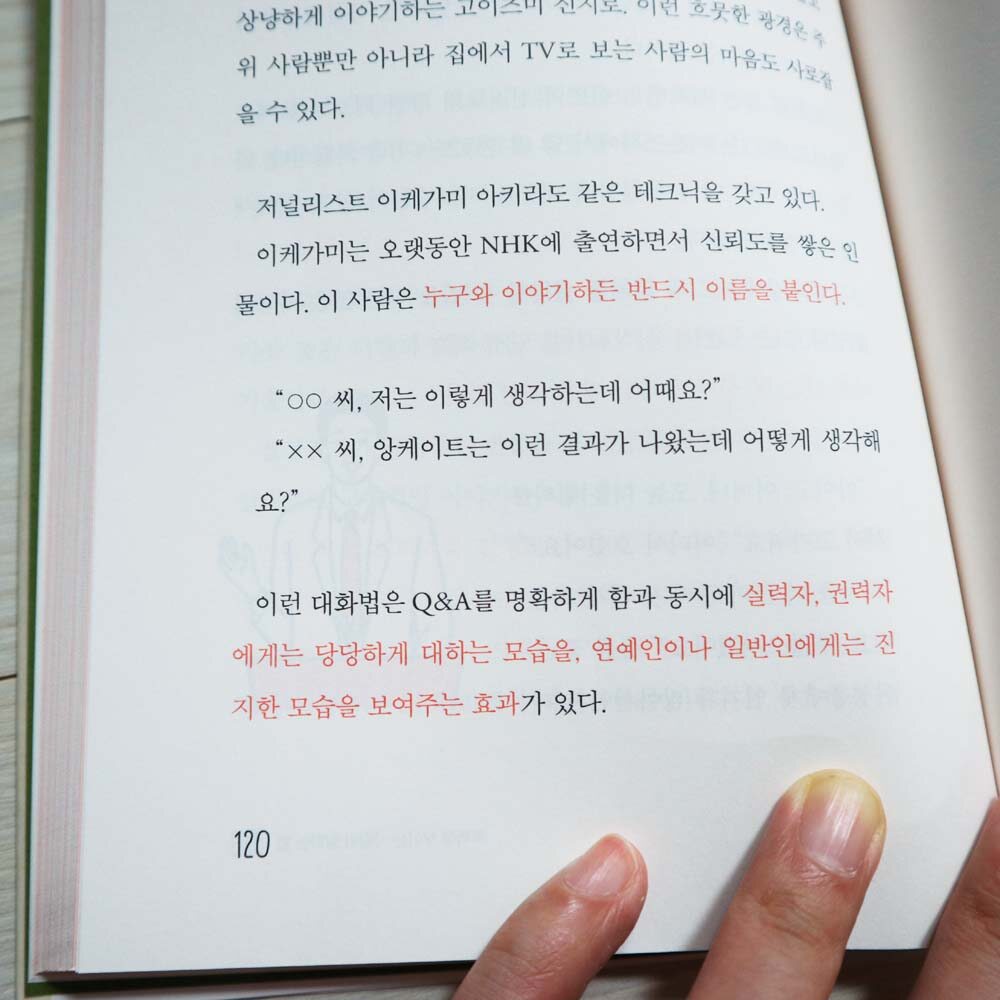 상냥하게 이야기하는 고이즈미 신지로. 이런 흐뭇한 광경은 주
위 사람뿐만 아니라 집에서 TV로 보는 사람의 마음도 사로잡
을 수 있다.
저널리스트 이케가미 아키라도 같은 테크닉을 갖고 있다.
이케가미는 오랫동안 NHK에 출연하면서 신뢰도를 쌓은 인
물이다. 이 사람은 누구와 이야기하든 반드시 이름을 붙인다.
“○○ 씨, 저는 이렇게 생각하는데 어때요?”
“×× 씨, 앙케이트는 이런 결과가 나왔는데 어떻게 생각해
요?”
이런 대화법은 Q&A를 명확하게 함과 동시에 실력자, 권력자
에게는 당당하게 대하는 모습을, 연예인이나 일반인에게는 진
지한 모습을 보여주는 효과가 있다.
120